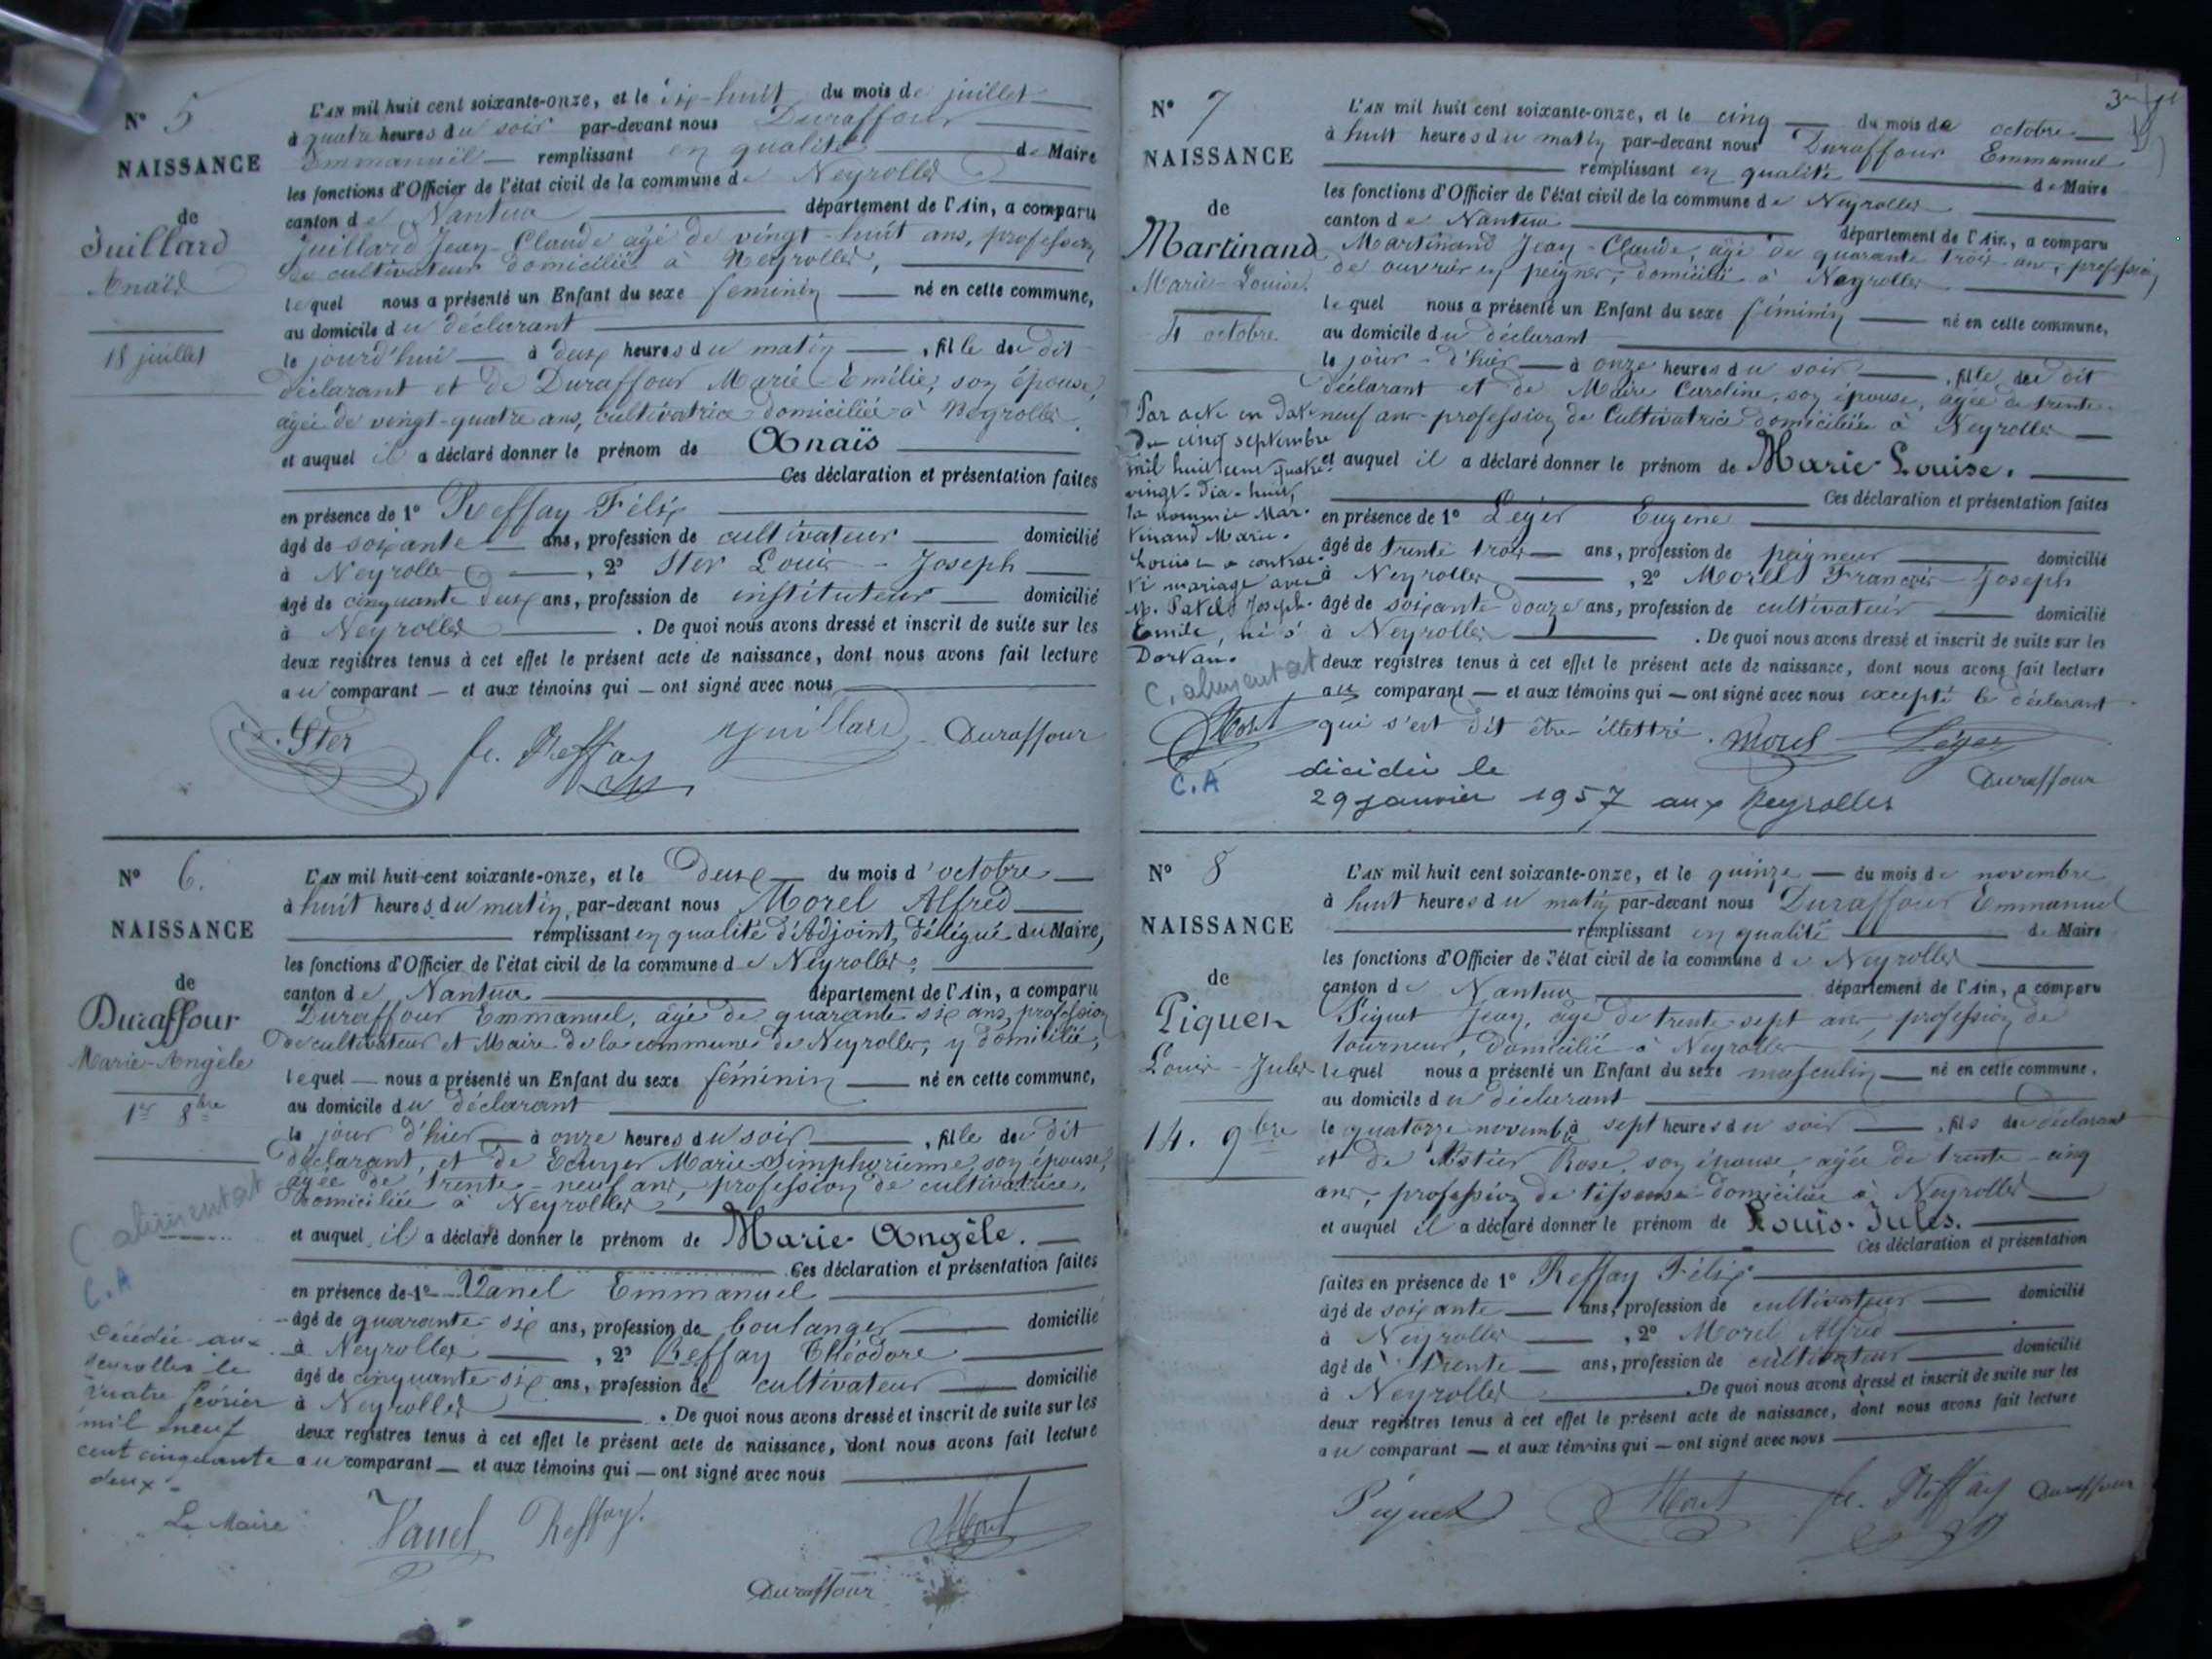 N° 5
NAISSANCE
de
Juillard
Anaïs
18 juillet
L'AN mil huit cent soixante-onze, et le dix-huit du mois de juillet
à quatre heures du soir par-devant nous Duraffour
Emmanuel remplissant en qualité de Maire
les fonctions d'Officier de l'état civil de la commune de Neyrolles
canton de Nantua département de l'Ain, a comparu
Juillard Jean-Claude âgé de vingt-huit ans, profession
de cultivateur domicilié à Neyrolles,
lequel nous a présenté un Enfant du sexe féminin né en cette commune,
au domicile du déclarant
le jourd'hui à deux heures du matin, fille du dit
déclarant et de Duraffour Marie Emélie, son épouse,
âgée de vingt-quatre ans, cultivatrice domiciliée à Neyrolles.
et auquel il a déclaré donner le prénom de Anaïs
Ces déclaration et présentation faites
en présence de 1° Reffay Félix
âgé de soixante ans, profession de cultivateur domicilié
à Neyrolles, 2° Ster Louis-Joseph
âgé de cinquante deux ans, profession de instituteur domicilié
à Neyrolles. De quoi nous avons dressé et inscrit de suite sur les
deux registres tenus à cet effet le présent acte de naissance, dont nous avons fait lecture
au comparant — et aux témoins qui — ont signé avec nous
Ster fe. Reffay Juillard Duraffour
N° 6.
NAISSANCE
de
Duraffour
Marie-Angèle
1er 8bre
C alimentat
C.A
Décédée aux
Neyrolles le
quatre février
mil neuf
cent cinquante
deux.
Le Maire
L'AN mil huit cent soixante-onze, et le Deux du mois d'octobre
à huit heures du matin, par-devant nous Morel Alfred
remplissant en qualité d'Adjoint, délégué du Maire,
les fonctions d'Officier de l'état civil de la commune de Neyrolles,
canton de Nantua département de l'Ain, a comparu
Duraffour Emmanuel, âgé de quarante six ans, profession
de cultivateur et Maire de la commune de Neyrolles, y domicilié,
lequel — nous a présenté un Enfant du sexe féminin né en cette commune,
au domicile du déclarant
le jour d'hier à onze heures du soir, fille du dit
déclarant, et de Ecuyer Marie-Simphorienne, son épouse,
âgée de trente-neuf ans, profession de cultivatrice,
domiciliée à Neyrolles
et auquel il a déclaré donner le prénom de Marie-Angèle.
Ces déclaration et présentation faites
en présence de 1° Vanel Emmanuel
âgé de quarante-six ans, profession de boulanger domicilié
à Neyrolles, 2° Reffay Théodore
âgé de cinquante-six ans, profession de cultivateur domicilié
à Neyrolles. De quoi nous avons dressé et inscrit de suite sur les
deux registres tenus à cet effet le présent acte de naissance, dont nous avons fait lecture
au comparant — et aux témoins qui — ont signé avec nous
Vanel Reffay. Morel
Duraffour
N° 7
NAISSANCE
de
Martinand
Marie-Louise.
4 octobre.
Par acte en date
du cinq septembre
mil huit cent quatre-
vingt-dix-huit,
la nommée Mar-
tinand Marie-
Louise a contrac-
té mariage avec
M. Patel Joseph-
Emile, né à
Dortan.
C. alimentat
C.A
L'AN mil huit cent soixante-onze, et le cinq du mois de octobre
à huit heures du matin par-devant nous Duraffour Emmanuel
remplissant en qualité de Maire
les fonctions d'Officier de l'état civil de la commune de Neyrolles
canton de Nantua département de l'Ain, a comparu
Martinand Jean-Claude, âgé de quarante trois ans, profession
de ouvrier en peignes, domicilié à Neyrolles
lequel nous a présenté un Enfant du sexe féminin né en cette commune,
au domicile du déclarant
le jour-d'hier à onze heures du soir, fille du dit
déclarant et de Maire Caroline, son épouse, âgée de trente-
neuf ans profession de Cultivatrice domiciliée à Neyrolles
et auquel il a déclaré donner le prénom de Marie-Louise.
Ces déclaration et présentation faites
en présence de 1° Léger Eugene
âgé de trente trois ans, profession de peigneur domicilié
à Neyrolles, 2° Morel François-Joseph
âgé de soixante douze ans, profession de cultivateur domicilié
à Neyrolles. De quoi nous avons dressé et inscrit de suite sur les
deux registres tenus à cet effet le présent acte de naissance, dont nous avons fait lecture
au comparant — et aux témoins qui — ont signé avec nous excepté le déclarant
qui s'est dit être illettré. Morel Léger
Morel
Duraffour
décédée le
29 janvier 1957 aux Neyrolles
N° 8
NAISSANCE
de
Piquet
Louis-Jules
14. 9bre
L'AN mil huit cent soixante-onze, et le quinze du mois de novembre
à huit heures du matin par-devant nous Duraffour Emmanuel
remplissant en qualité de Maire
les fonctions d'Officier de l'état civil de la commune de Neyrolles
canton de Nantua département de l'Ain, a comparu
Piquet Jean, âgé de trente-sept ans, profession de
tourneur, domicilié à Neyrolles
lequel nous a présenté un Enfant du sexe masculin né en cette commune,
au domicile du déclarant
le quatorze novemb. à sept heures du soir, fils du déclarant
et de Astier Rose, son épouse, âgée de trente-cinq
ans, profession de tisseuse domiciliée à Neyrolles
et auquel il a déclaré donner le prénom de Louis-Jules.
Ces déclaration et présentation
faites en présence de 1° Reffay Félix
âgé de soixante ans, profession de cultivateur domicilié
à Neyrolles, 2° Morel Alfred
âgé de trente ans, profession de cultivateur domicilié
à Neyrolles. De quoi nous avons dressé et inscrit de suite sur les
deux registres tenus à cet effet le présent acte de naissance, dont nous avons fait lecture
au comparant — et aux témoins qui — ont signé avec nous
Piquet Morel fe. Reffay Duraffour